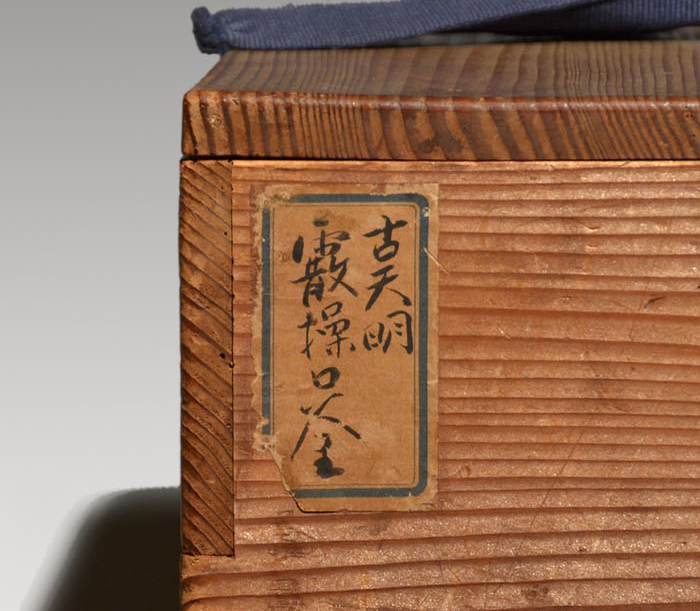 古天明
霰操口釜